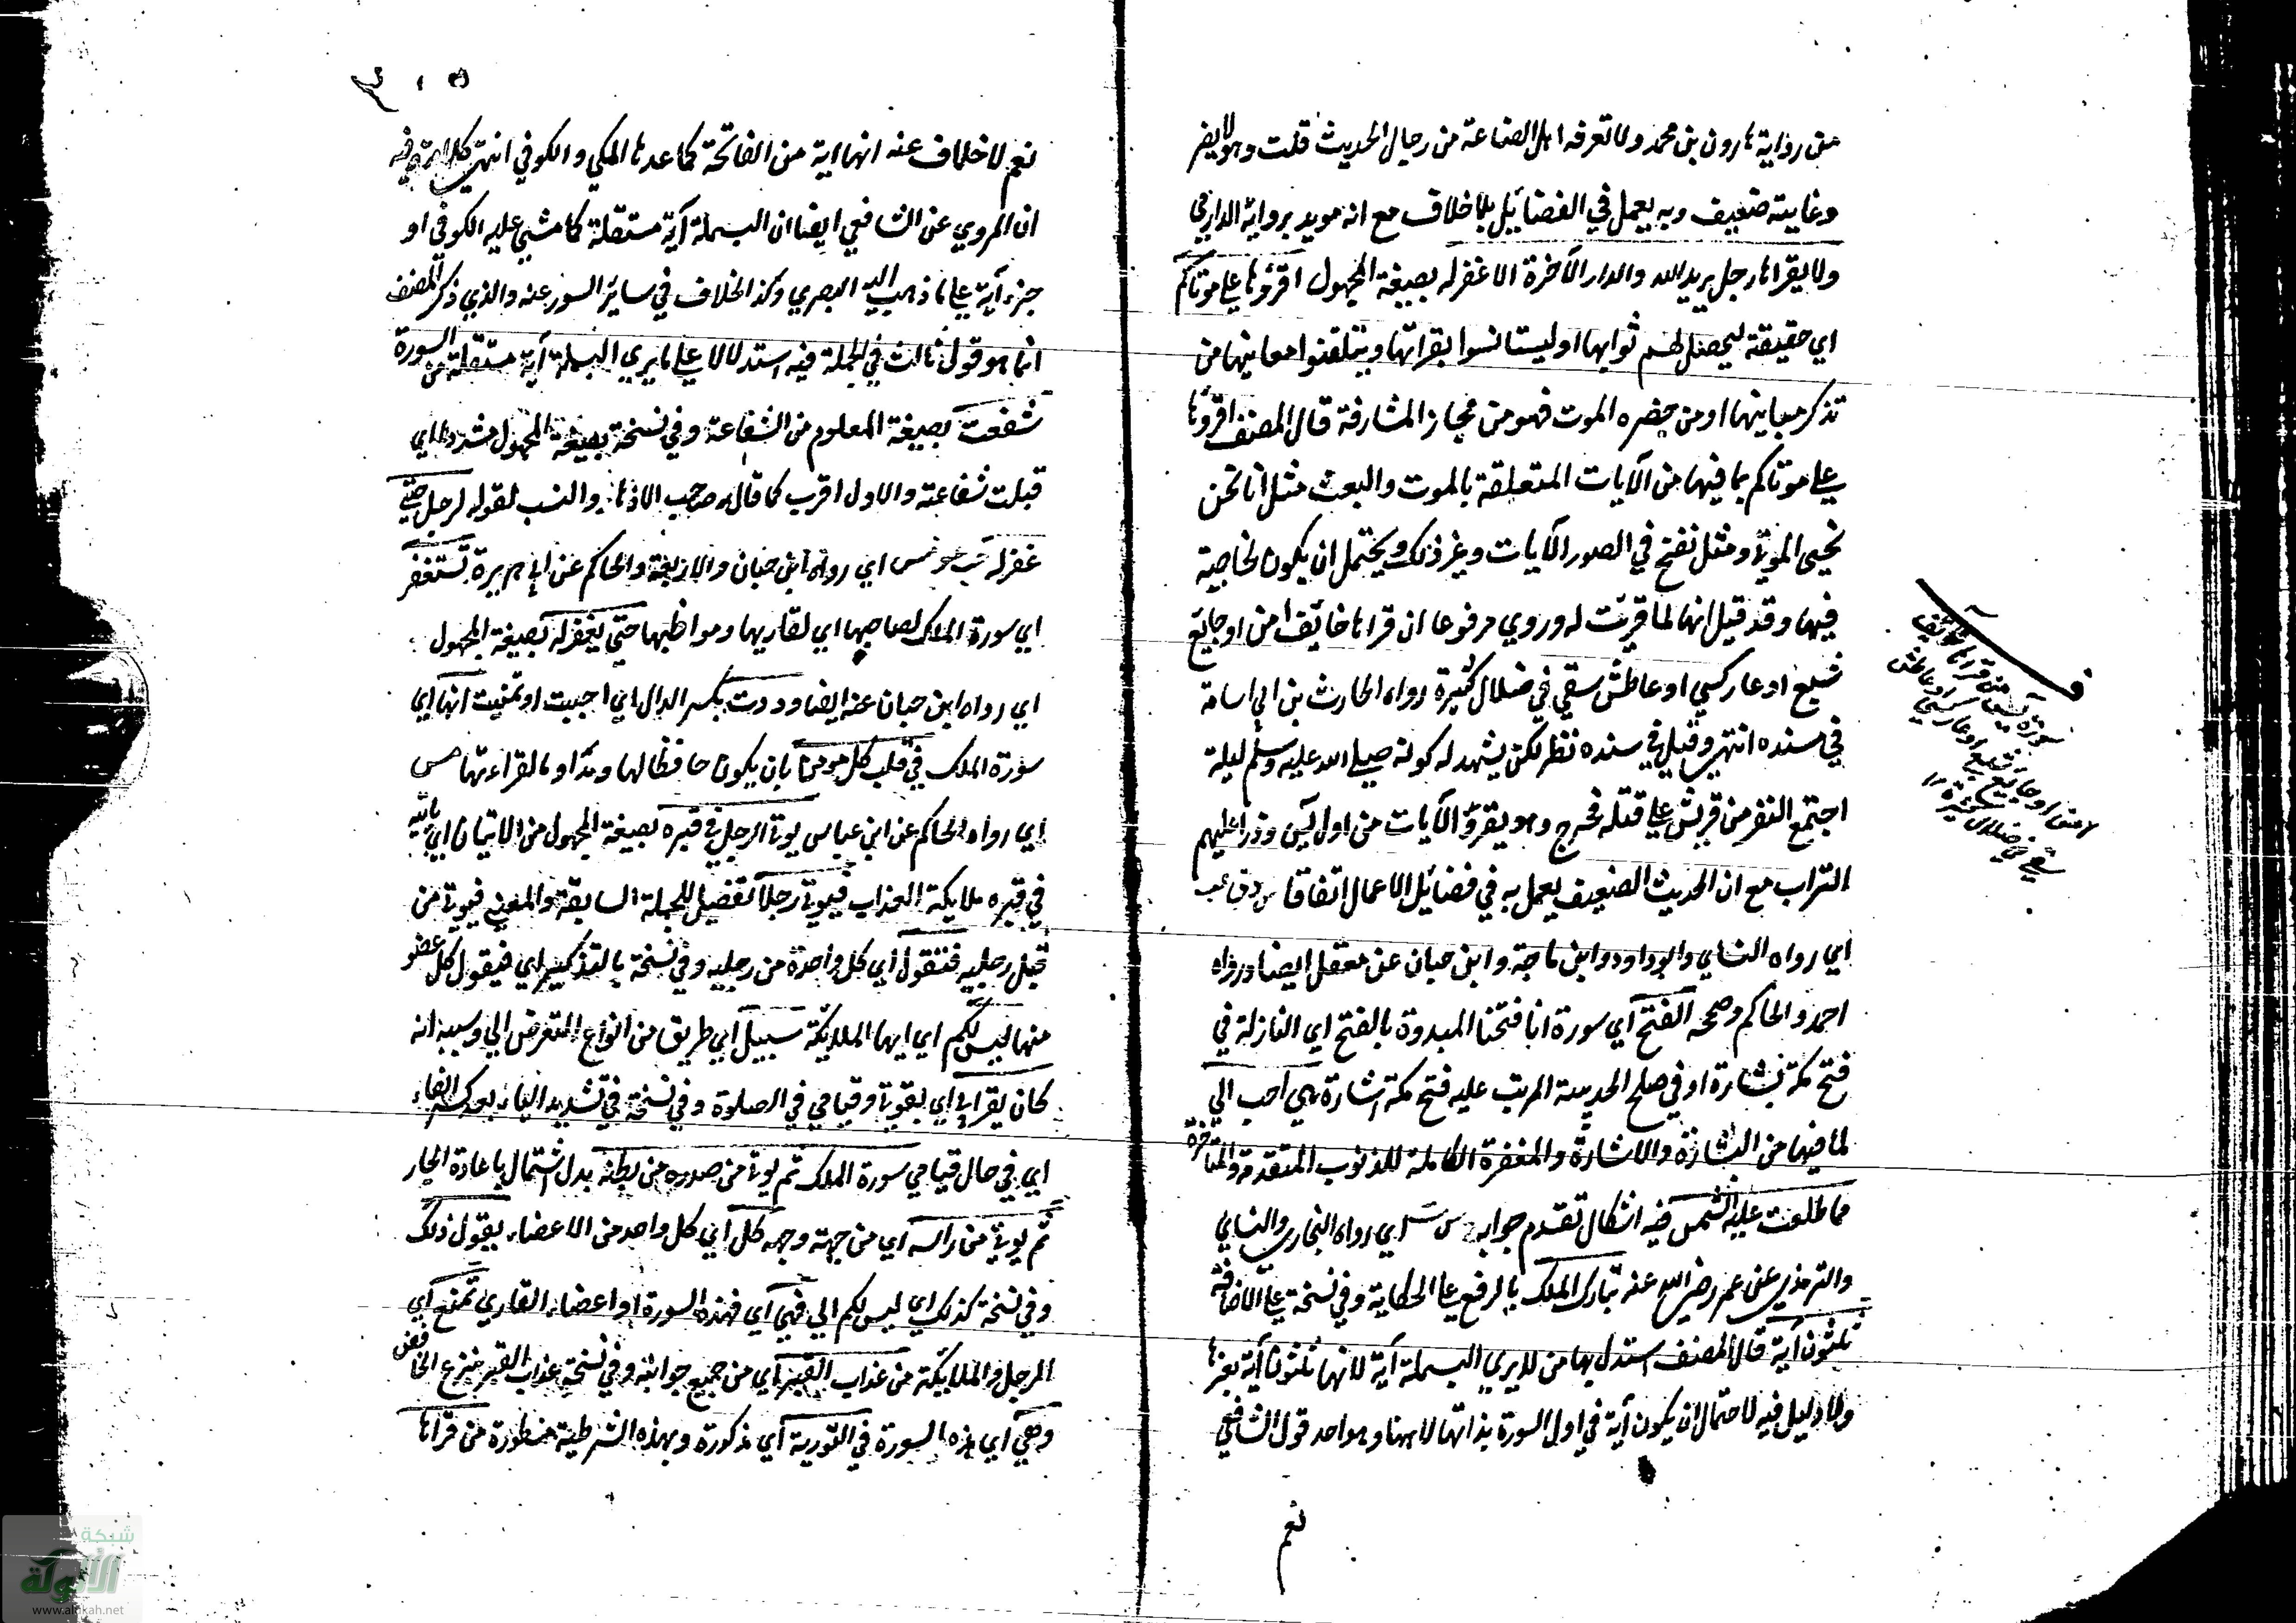 من رواية هارون بن محمد ولا تعرفه اهل الصناعة من رجال الحديث قلت وهو لا يضر
وغايته ضعيف وبه يعمل في الفضائل بلا خلاف مع انه مويد برواية الدارمي
ولا يقراها رجل يريد الله والدار الآخرة الا غفر له بصيغة المجهول اقرؤها علي موتاكم
اي حقيقة ليحصل لهم ثوابها او ليستانسوا بقراتها ويتلقنوا معانيها من
تذكر مبانيها او من حضره الموت فهو من مجاز المشارفة قال المصنف اقرؤها
علي موتاكم بما فيها من الآيات المتعلقة بالموت والبعث مثل انا نحن
نحيى الموتي ومثل نفخ في الصور الآيات وغير ذلك ويحتمل ان يكون لخاصية
فيها وقد قيل انها لما قريت له وروي مرفوعا ان قراها خائف امن او جايع
شبع او عار كسي او عاطش سقي في خلال كثيرة رواه الحارث بن ابي اسامة
في مسنده انتهي وقيل في سنده نظر لكن يشهد له كونه صلي الله عليه وسلم ليلة
اجتمع النفر من قريش علي قتله فخرج وهو يقرؤ الآيات من اول يس وذرا عليهم
التراب مع ان الحديث الضعيف يعمل به في فضائل الاعمال اتفاقا س د ق حب
اي رواه النساي وابو داود وابن ماجة وابن حبان عن معقل ايضا ورواه
احمد والحاكم وصححه الفتح اي سورة انا فتحنا المبدوة بالفتح اي النازلة في
فتح مكة بشارة او في صلح الحديبية المرتب عليه فتح مكة اشارة هي احب الي
لما فيها من البشارة والاشارة والمغفرة الكاملة للذنوب المتقدمة والمتاخرة
مما طلعت عليه الشمس فيه اشكال تقدم جوابه خ س ت اي رواه البخاري والنساي
والترمذي عن عمر رضي الله عنه تبارك الملك بالرفع علي الحكاية وفي نسخة علي الاضافة
ثلثون آية قال المصنف استدل بها من لا يري البسملة آية لانها ثلثون آية بغيرها
ولا دليل فيه لاحتمال ان يكون آية في اول السورة بذاتها لا ههنا وهو احد قول الشافعي
نعم
من قراها خائف
سورة يس
امن او جايع شبع او عار كسي او عاطش
سقي في خلال كثيرة
نعم لا خلاف عنه انها اية من الفاتحة كما عدها المكي والكوفي انتهي كلامه وفيه
ان المروي عن الشافعي ايضا ان البسملة آية مستقلة كما مشي عليه الكوفي او
جزء آية علي ما ذهب اليه البصري وكذا الخلاف في سائر السور عنه والذي ذكره المصنف
انما هو قول ثالث في الجملة فيه استدلالا علي ما يري البسملة آية مستقلة من السورة
شفعت بصيغة المعلوم من الشفاعة وفي نسخة بصيغة المجهول مشددا اي
قبلت شفاعته والاول اقرب كما قاله صاحب الازهار والنسب لقوله لرجل حتي
غفر له حب عو مس اي رواه ابن حبان والاربعة والحاكم عن ابي هريرة تستغفر
اي سورة الملك لصاحبها اي لقاريها ومواظبها حتي يغفر له بصيغة المجهول
اي رواه ابن حبان عنه ايضا وددت بكسر الدال اي احببت او تمنيت انها اي
سورة الملك في قلب كل مومن بان يكون حافظا لها ومداوما لقراءتها مس
اي رواه الحاكم عن ابن عباس يوتي الرجل في قبره بصيغة المجهول من الاتيان اي ياتيه
في قبره ملايكة العذاب فيوتي رجلاه تفصيل للجملة السابقة والمعني فيوتي من
قبل رجليه فتقول اي كل واحدة من رجليه وفي نسخة بالتذكير اي فيقول كل عضو
منها ليس لكم اي ايها الملايكة سبيل اي طريق من انواع التعرض الي وسببه انه
كان يقرا بي اي بقوتي وقيامي في الصلوة وفي نسخة في تشديد الياء بعد كسر الفاء
اي في حال قيامي سورة الملك ثم يوتي من صدره من بطنه بدل اشتمال باعادة الجار
ثم يوتي من راسه اي من جهة وجهه كل اي كل واحد من الاعضاء يقول ذلك
وفي نسخة كذلك اي ليس لكم الي فهي اي فهذه السورة او اعضاء القاري تمنع اي
الرجل والملايكة من عذاب القبر اي من جميع جوانبه وفي نسخة عذاب القبر بنزع الخافض
وهي اي هذه السورة في التورية اي مذكورة وبهذه الشرطية مسطورة من قراها
شبكة
الألوكة
www.alukah.net